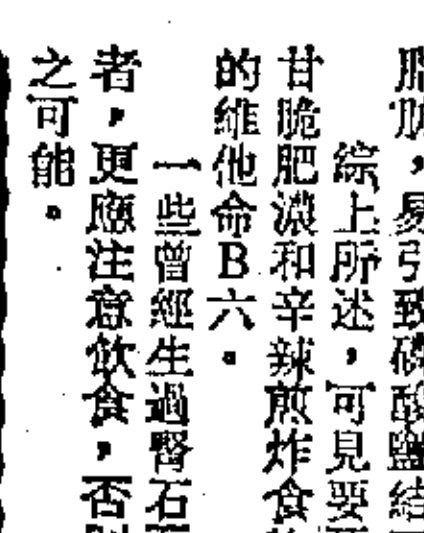 脂肪，易引致磷酸鹽結
綜上所述，可見要
甘脆肥濃和辛辣煎炸食
的維他命B六。
一些曾經生過腎石
者，更應注意飲食，否
之可能。